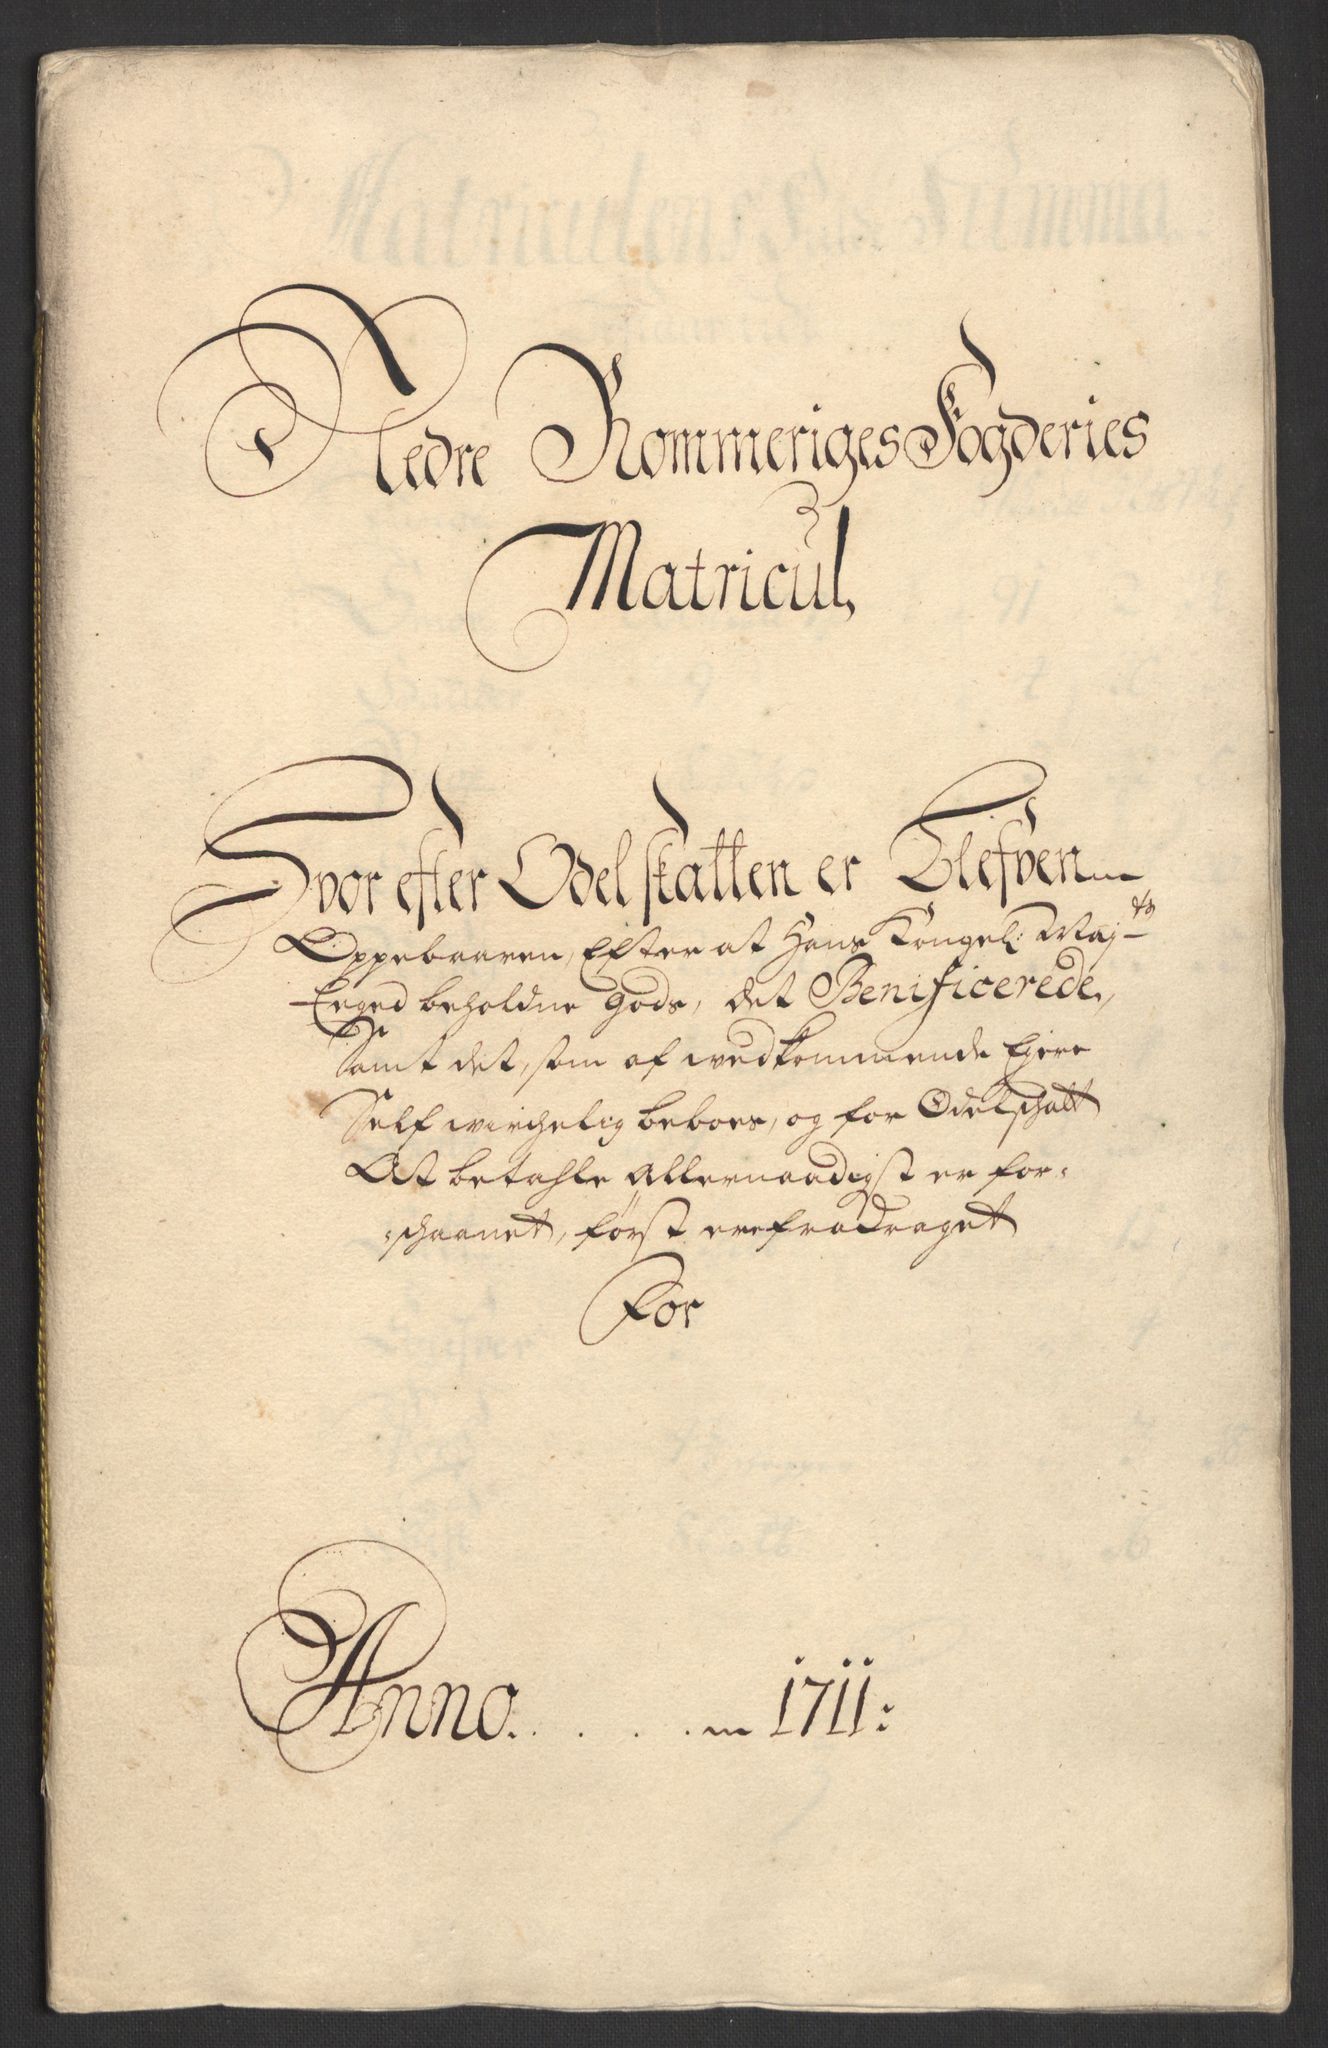 Nedre Rommeriges Fogderies
Matricul,
Hvor efter Odelskatten er Blefven
Oppebaaren, Efter at Hans Kongel: Maj:ts
beholdne Gods, det Benificerede,
Samt det, som af wedkommende Ejere
Self wirchelig beboes, og for Odelschatt
At betahle Allernaadigst er for-
schaanet, først ere fradraget
For
Anno. . . . . 1711: